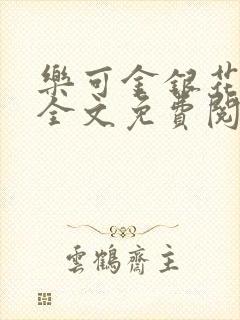 樂可金銀花
全文免費閱
雲鶴齋主